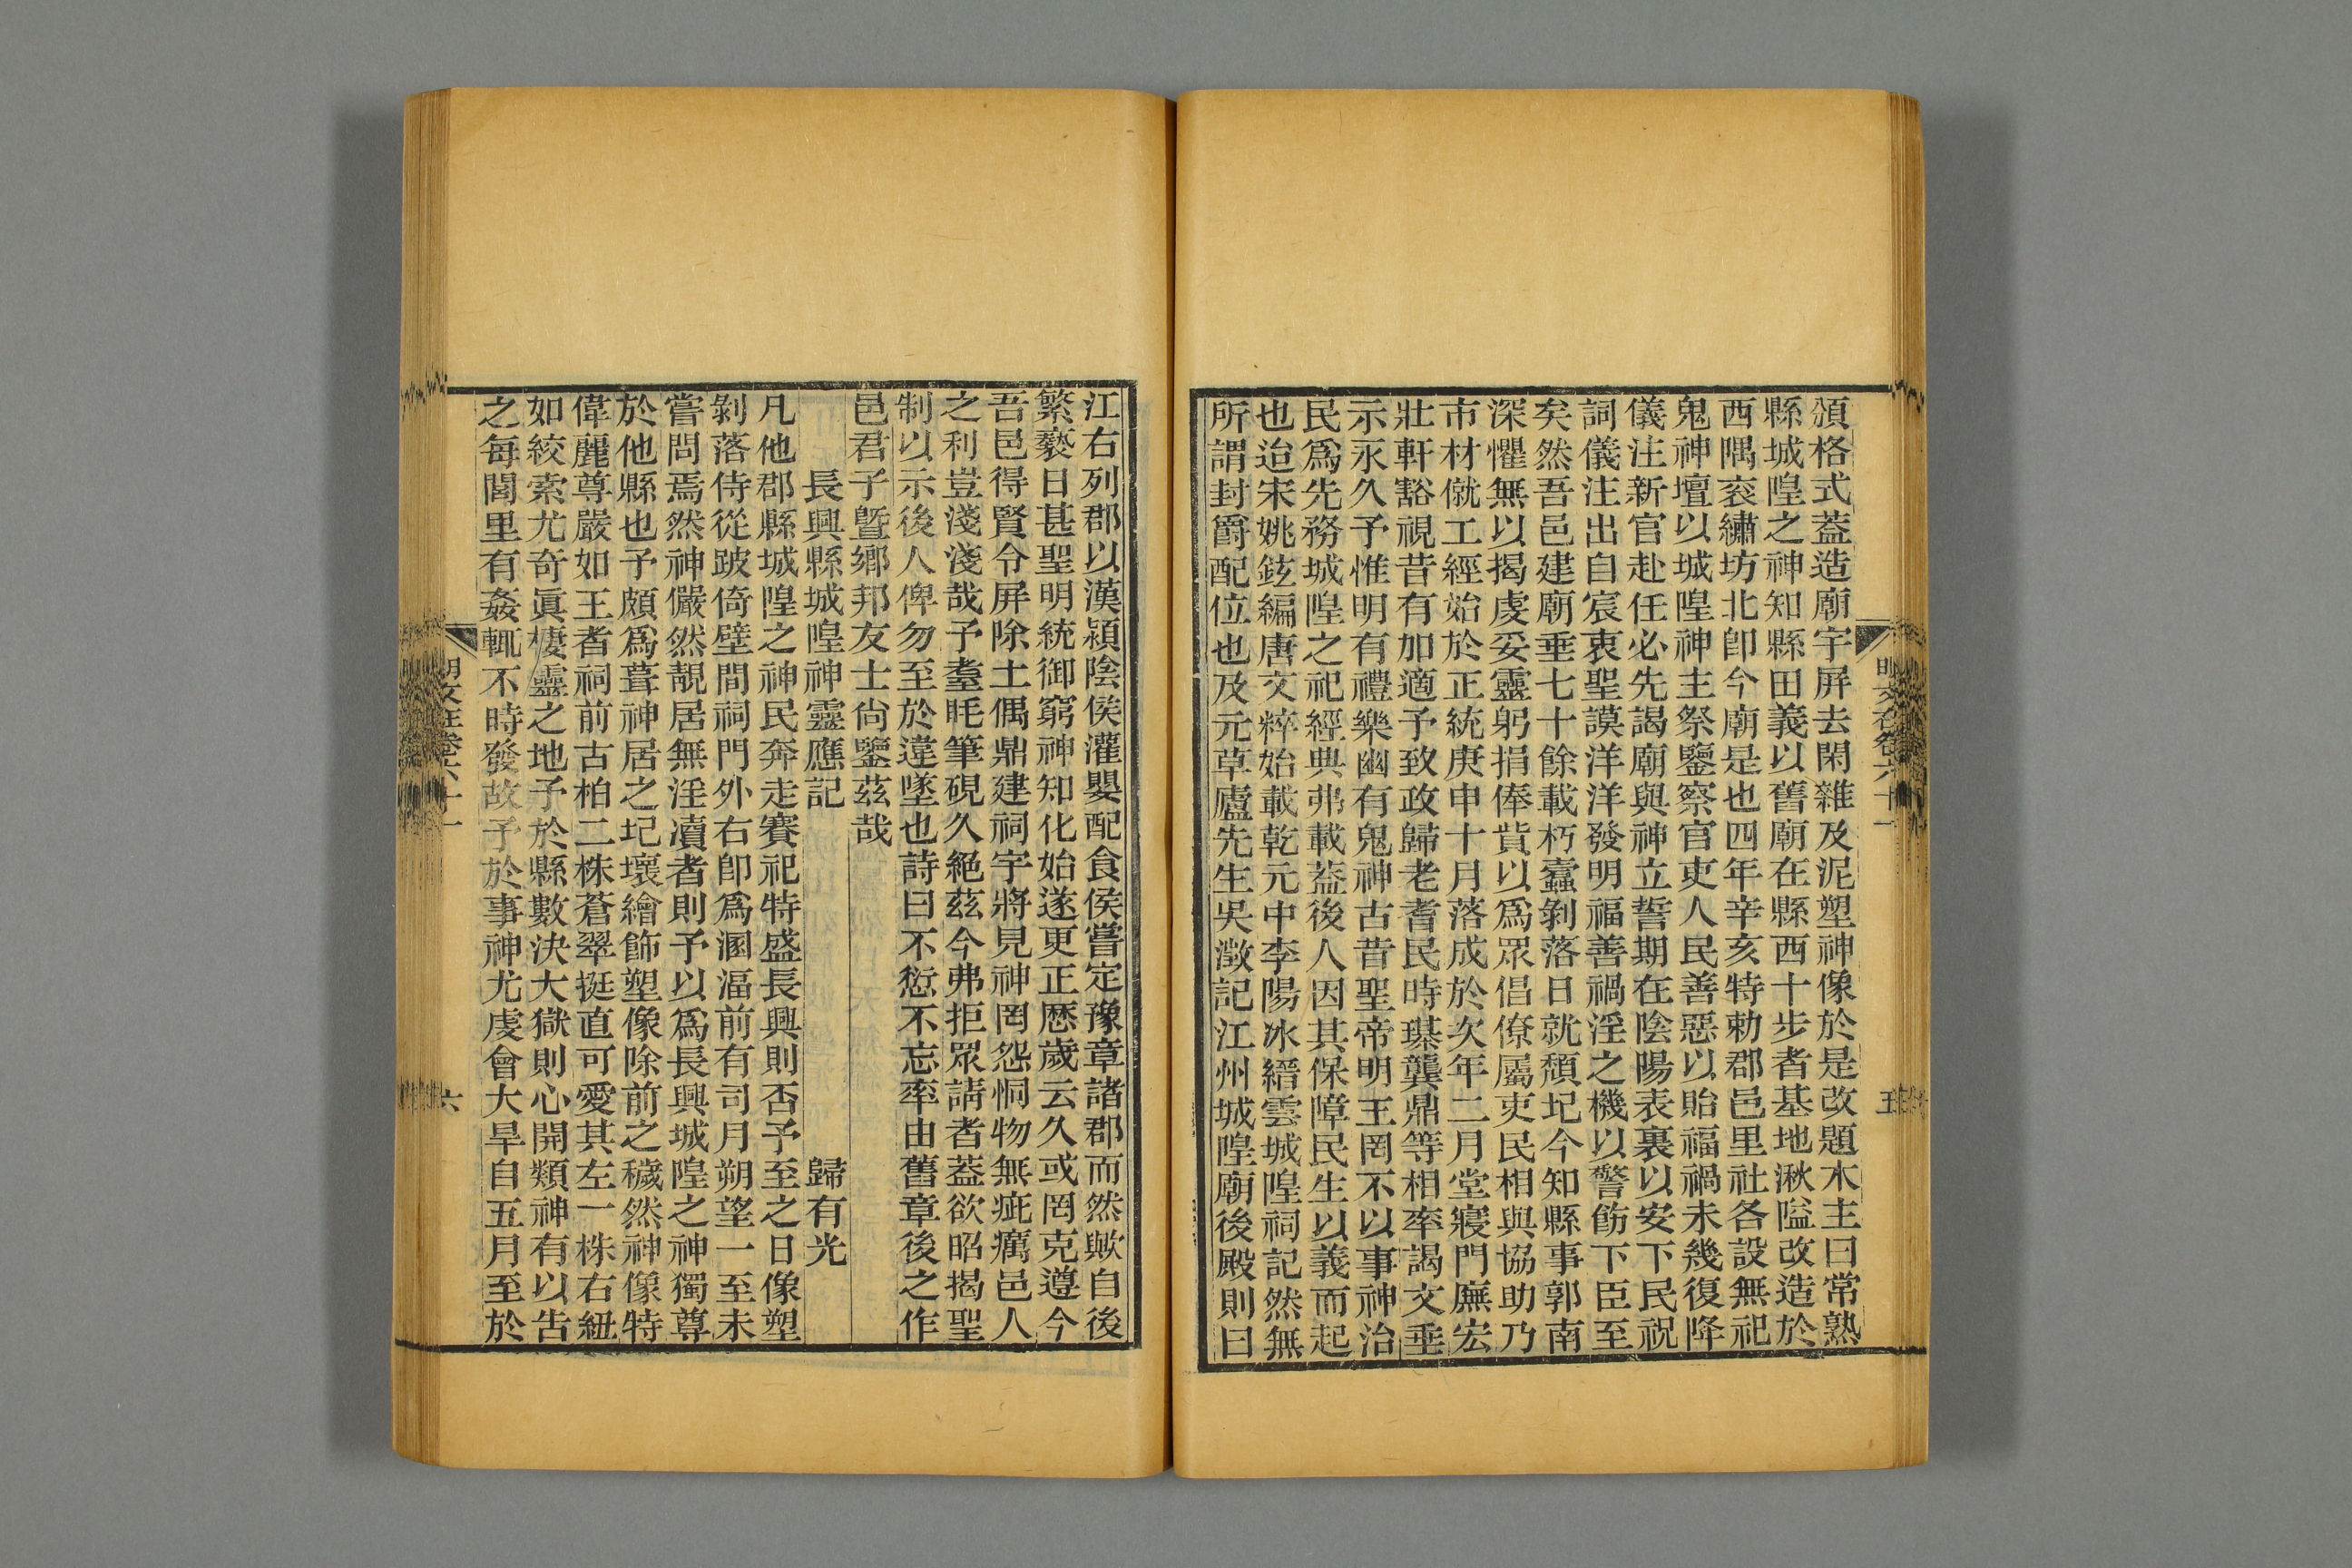 頒格式蓋造廟宇屏去閑雜及泥塑神像於是改題木主曰常熟
縣城隍之神知縣田義以舊廟在縣西十步者基地湫隘改造於
西隅衮繡坊北卽今廟是也四年辛亥特勅郡邑里社各設無祀
鬼神壇以城隍神主祭鑒察官吏人民善惡以貽福禍未幾復降
儀注新官赴任必先謁廟與神立誓期在陰陽表裏以安下民祝
詞儀注出自宸衷聖謨洋洋發明福善禍淫之機以警飭下臣至
矣然吾邑建廟垂七十餘載朽蠹剝落日就頹圮今知縣事郭南
深懼無以揭虔妥靈躬捐俸貲以爲眾倡僚屬吏民相與協助乃
市材僦工經始於正統庚申十月落成於次年二月堂寢門廡宏
壯軒豁視昔有加適予致政歸老耆民時璂龔鼎等相率謁文垂
示永久予惟明有禮樂幽有鬼神古昔聖帝明王罔不以事神治
民爲先務城隍之祀經典弗載蓋後人因其保障民生以義而起
也迨宋姚鉉編唐文粹始載乾元中李陽冰縉雲城隍祠記然無
所謂封爵配位也及元草廬先生吳澂記江州城隍廟後殿則曰
明文在卷六十一
五
江右列郡以漢潁陰侯灌嬰配食侯嘗定豫章諸郡而然歟自後
繁褻日甚聖明統御窮神知化始遂更正厯歲云久或罔克遵今
吾邑得賢令屏除土偶鼎建祠宇將見神罔怨恫物無疵癘邑人
之利豈淺淺哉予耋眊筆硯久絕茲今弗拒眾請者蓋欲昭揭聖
制以示後人俾勿至於違墜也詩曰不愆不忘率由舊章後之作
邑君子曁鄉邦友士尙鑒茲哉
長興縣城隍神靈應記　歸有光
凡他郡縣城隍之神民奔走賽祀特盛長興則否予至之日像塑
剝落侍從跛倚壁間祠門外右卽爲溷湢前有司月朔望一至未
嘗問焉然神儼然靚居無淫瀆者則予以爲長興城隍之神獨尊
於他縣也予頗爲葺神居之圮壞繪飾塑像除前之穢然神像特
偉麗尊嚴如王者祠前古柏二株蒼翠挺直可愛其左一株右紐
如絞索尤奇眞棲靈之地予於縣數決大獄則心開類神有以告
之每閭里有姦輒不時發故予於事神尤虔會大旱自五月至於
明文在卷六十一
六